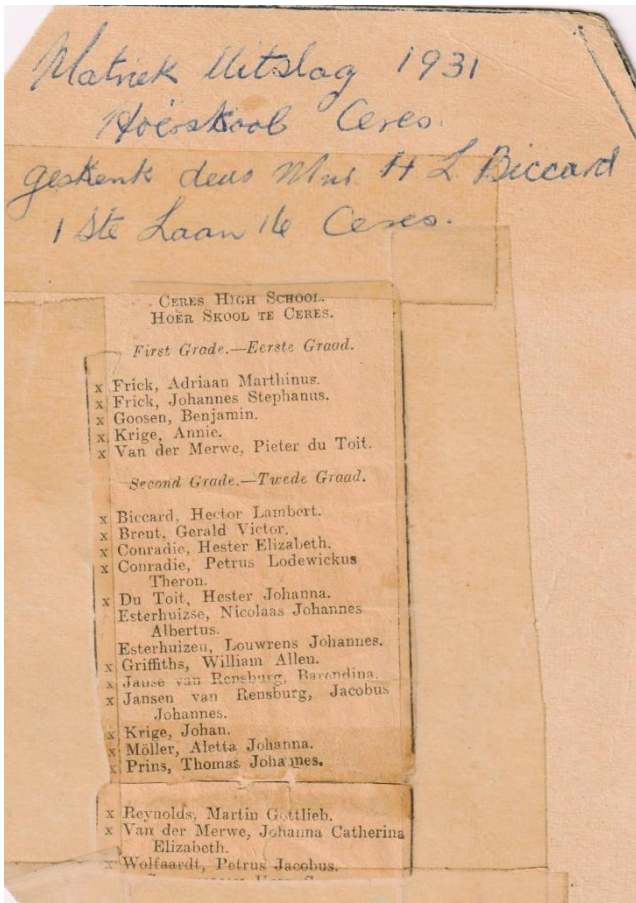 Matriek Uitslag 1931
Hoërskool Ceres.
geskenk deur Mnr H L Biccard
1ste Laan 16 Ceres.
CERES HIGH SCHOOL.
HOËR SKOOL TE CERES.
First Grade.—Eerste Graad.
x Frick, Adriaan Marthinus.
x Frick, Johannes Stephanus.
x Goosen, Benjamin.
x Krige, Annie.
x Van der Merwe, Pieter du Toit.
Second Grade.—Twede Graad.
x Biccard, Hector Lambert.
x Brent, Gerald Victor.
x Conradie, Hester Elizabeth.
x Conradie, Petrus Lodewickus
Theron.
x Du Toit, Hester Johanna.
Esterhuizse, Nicolaas Johannes
Albertus.
Esterhuizen, Louwrens Johannes.
x Griffiths, William Allen.
x Janse van Rensburg, Barendina.
x Jansen van Rensburg, Jacobus
Johannes.
x Krige, Johan.
x Möller, Aletta Johanna.
x Prins, Thomas Johannes.
x Reynolds, Martin Gottlieb.
x Van der Merwe, Johanna Catherina
Elizabeth.
x Wolfaardt, Petrus Jacobus.